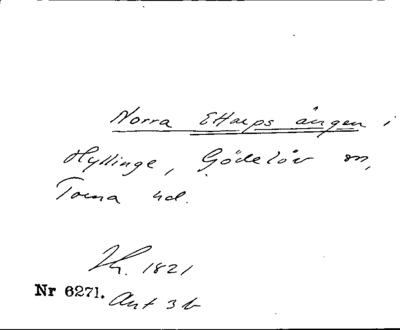 Norra EHarps ängen i
Hyllinge, Gödelöv sn,
Torna hd.
Kh. 1821
Nr 6271. Akt 3 b